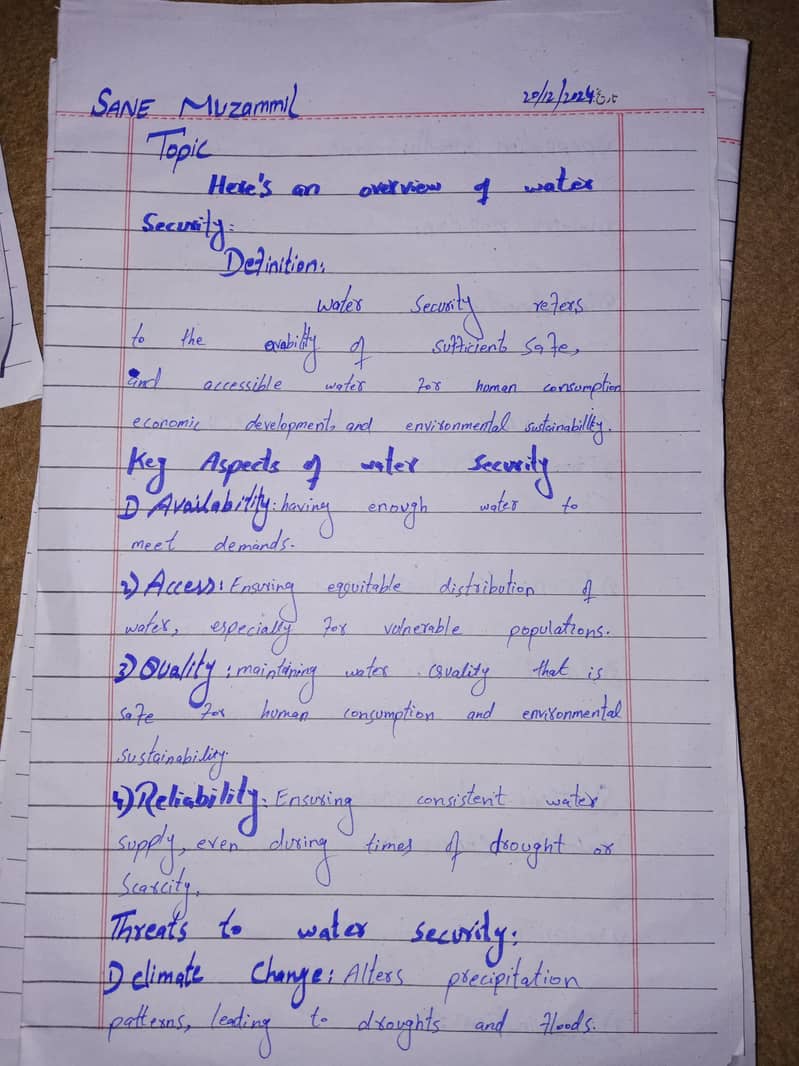 SANE MUZAMMIL 20/12/2024
Topic
Here's an overview of water
Security:
Definition:
Water Security refers
to the avability of sufficient safe,
and accessible water for human consumption
economic development, and environmental sustainability.
Key Aspects of water Security
1) Availability: having enough water to
meet demands.
2) Access: Ensuring equitable distribution of
water, especially for vulnerable populations.
3) Quality: maintaining water Quality that is
safe for human consumption and environmental
sustainability.
4) Reliability: Ensuring consistent water
supply, even during times of drought or
Scarcity.
Threats to water security:
1) climate Change: Alters precipitation
patterns, leading to droughts and floods.